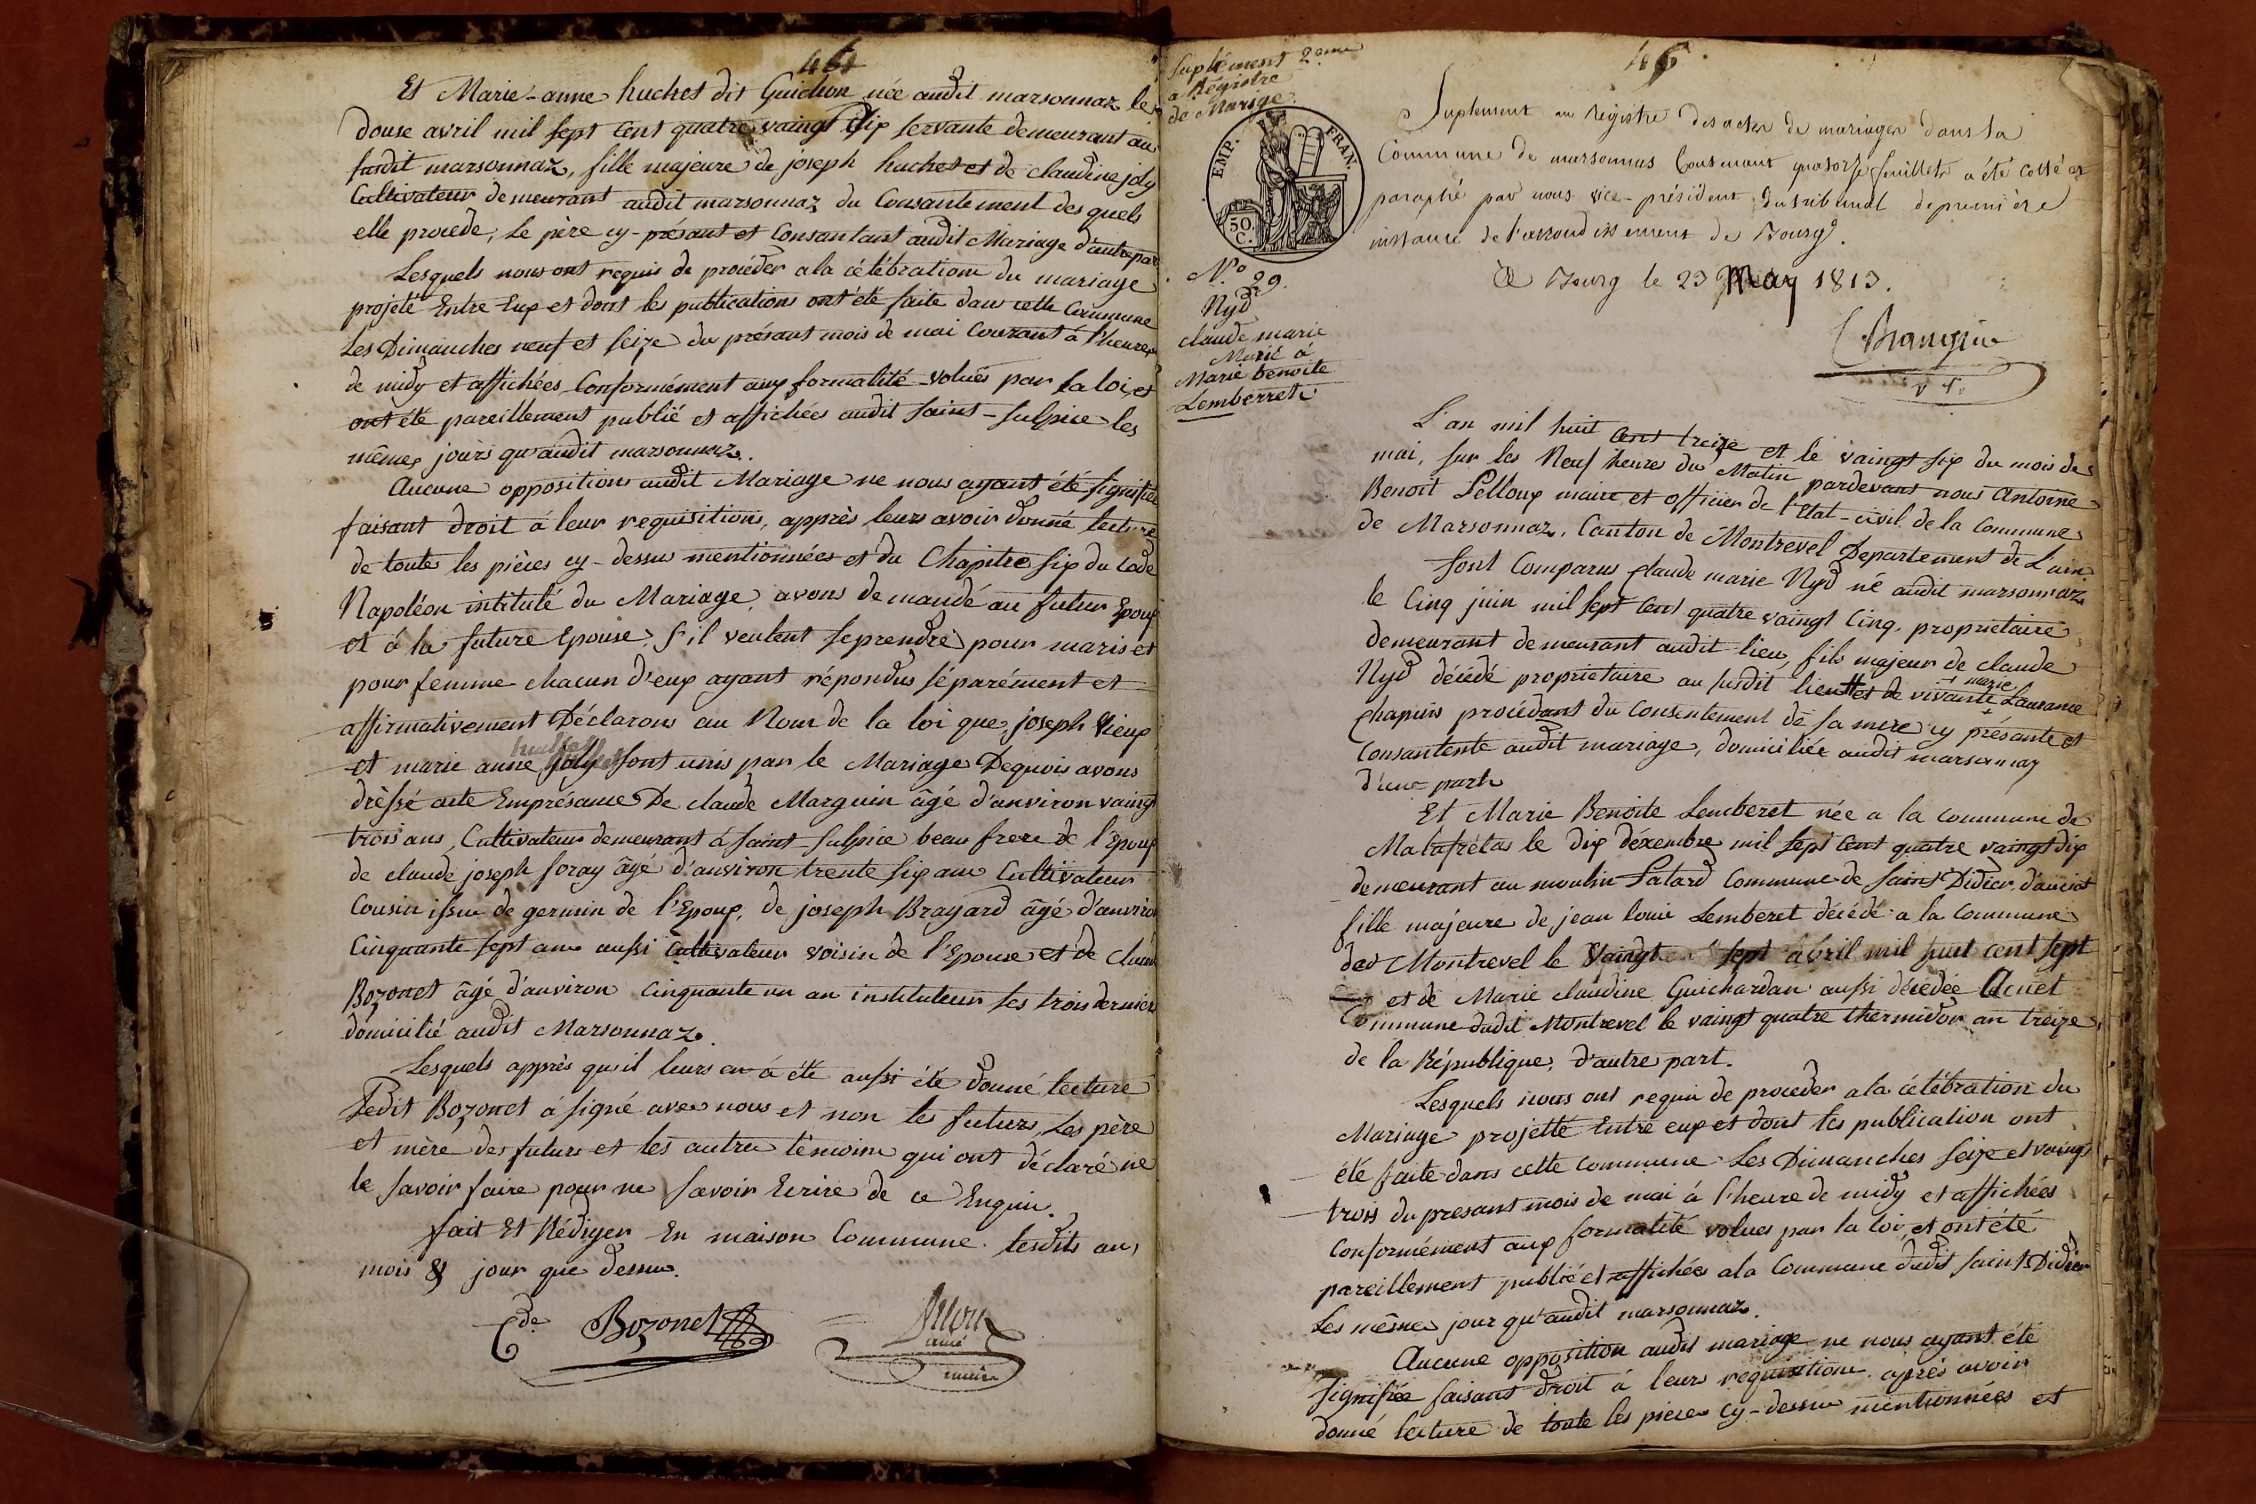 Et Marie-anne huchet dit Guichon née audit marsonnaz le
douse avril mil sept cent quatre vaingt dix servante demeurant au
susdit marsonnaz, fille majeure de joseph huchet et de claudine joly
Cultivateur demeurant audit marsonnaz du Consantement des quels
elle procede, le père cy-présant et Consantant audit Mariage d'autre par
Lesquels nous ont requis de procéder a la célébratione du mariage
projeté Entre Eux et dont les publications ont été faite dans cette Commune
Les Dimanches neuf et seize du présant mois de mai Courant à l'heure
de midy et affichées Conformément aux formalité volués par la loi, et
ont été pareillement publié et affichées audit saint-sulpice les
mêmes jours qu'audit marsonnaz.
Aucune oppositions audit Mariage ne nous ayant été signifiée
faisant droit á leur requisitions, apprès leurs avoir donné lecture
de toute les pièces cy-dessus mentionnées et du Chapitre six du Code
Napoléon intitulé du Mariage, avons demandé au futur Epoux
et á la future Epouse, s'il veulent se prendre pour maris et
pour femme chacun d'eux ayant répondus séparément et
affirmativement Déclarons au Nom de la loi que, joseph Vieux
et marie anne joly sont unis par le Mariage Dequois avons
dréssé acte Emprésance De claude Marguin âgé d'anviron vaingt
trois ans, Cultivateur demeurant á saint-sulpice beau frere de l'Epoux
de claude joseph foray âgé d'anviron trente six ans Cultivateur
Cousin issu de germin de l'Epoux, de joseph Brayard âgé d'anviron
Cinquante sept ans aussi Cultivateur voisin de l'Epouse et de claude
Bozonet âgé d'anviron Cinquante un an instituteur les trois dernier
domicilié audit Marsonnaz.
Lesquels apprès qu'il leurs en á été aussi été donné lecture
Ledit Bozonet á signé avec nous et non les futurs, Les père
et mère des futurs et les autre témoins qui ont déclaré ne
le savoir faire pour ne savoir Ecrire de ce Enquis.
fait Et Rédiger En maison Commune. lesdits an,
mois & jour que dessus.
Cde Bozonet
ainé
maire
46
Suplément 2eme
a Régistre
de Mariage.
EMP. FRAN.
50.
C.
N.o 29.
Nyd
claude marie
Marié á
Marie benoite
Lemberret
Suplement au registre des actes de mariages dans la
Commune de marsonnas Contenant quatorze feuillets a été cotté et
paraphé par nous vice-président du tribunal de première
instance de l'arrondissement de Bourg.
A Bourg le 23 May 1813.
L'an mil huit cent treize et le vaingt six du mois de
mai, sur les Neuf heures du Matin pardevant nous Antoine
Benoit Pelloux maire et officier de l'Etat-civil de la Commune
de Marsonnaz, Canton de Montrevel Departement de L'ain.
sont Comparus claude marie Nyd né audit marsonnaz
le Cinq juin mil sept cent quatre vaingt Cinq, proprietaire
demeurant demeurant audit lieu, fils majeur de claude
Nyd décédé proprietaire au susdit lieu et de vivante + marie Laurance
Chapuis procédant du Consentement de sa mere cy présante et
Consantente audit mariage, domiciliée audit marsonnaz
d'une part
Et Marie Benoite Lemberet née a la commune de
Malafrétas le dix déxembre mil sept cent quatre vaingt dix
demeurant au moulin Patard Commune de saint Didier d'aussiat
fille majeure de jean louis Lemberet décédé a la commune
de Montrevel le Vaingt sept avril mil huit cent sept
et de Marie claudine Guichardan aussi décédée
Commune dudit Montrevel le vaingt quatre thermidor an treize
de la République, d'autre part.
Lesquels nous ont requis de proceder a la célébration du
Mariage projetté Entre eux et dont les publication ont
été faite dans cette commune Les Dimanches seize et vaingt
trois du presant mois de mai á l'heure de midy et affichées
Conformément aux formalité volues par la loi, et ont été
pareillement publié et affichées a la Commune dudit saint Didier
Les mêmes jour qu'audit marsonnaz.
Aucune opposition audit mariage ne nous ayant été
signifiée faisant droit á leurs requisitions. après avoir
donné lecture de toute les pieces cy-dessus mentionnées et